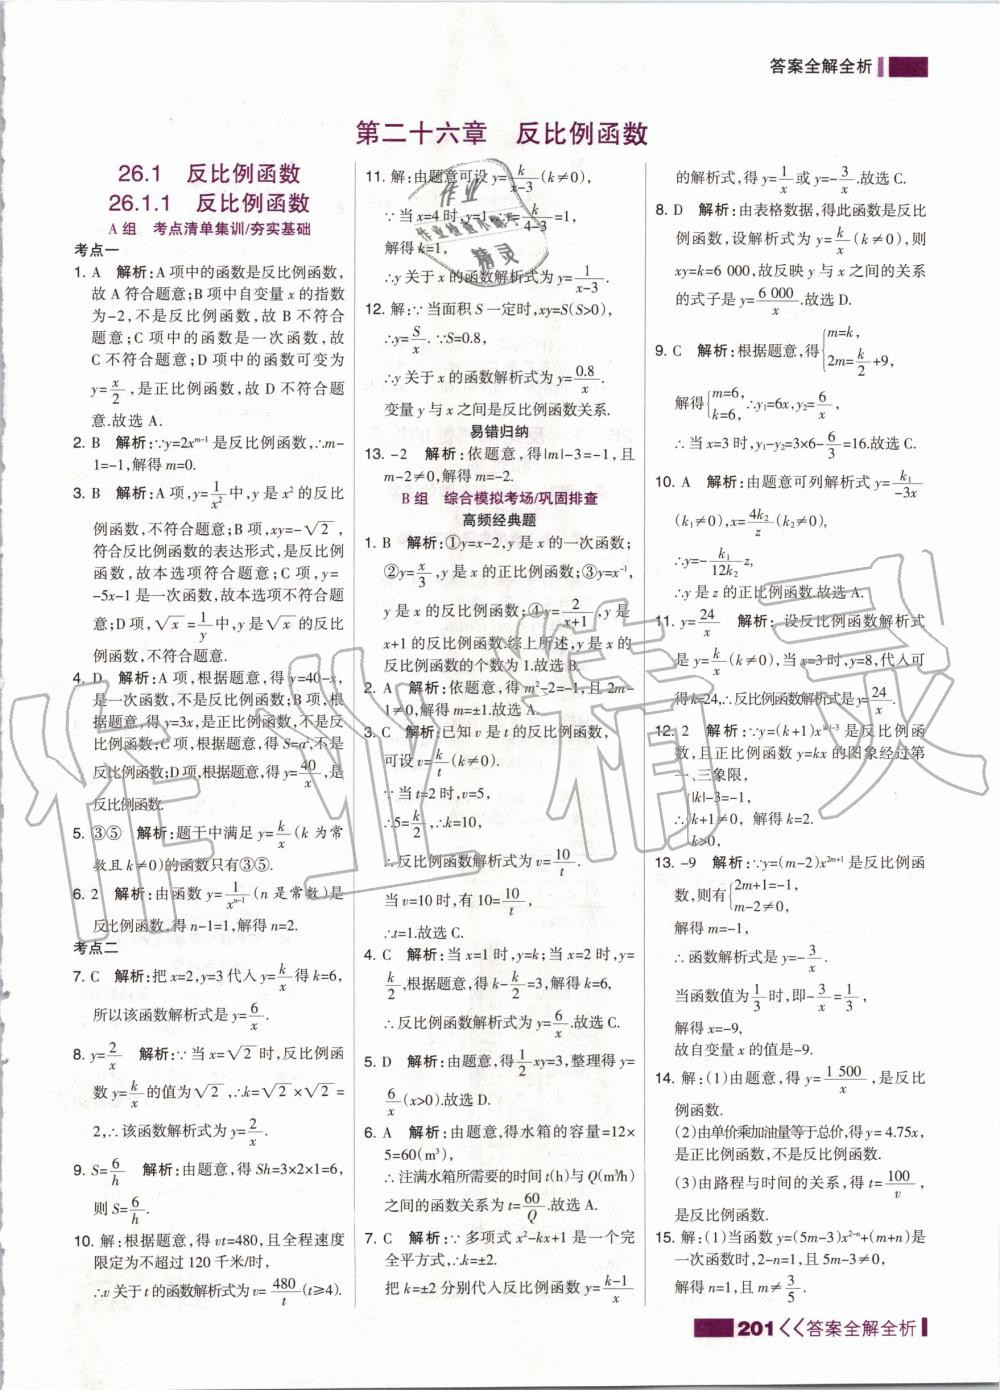 答案全解全析
第二十六章 反比例函数
26.1 反比例函数
26.1.1 反比例函数
A 组 考点清单集训/夯实基础
考点一
1. A 解析:A 项中的函数是反比例函数,
故 A 符合题意;B 项中自变量 x 的指数
为-2,不是反比例函数,故 B 不符合
题意;C 项中的函数是一次函数,故
C 不符合题意;D 项中的函数可变为
y=x/2,是正比例函数,故 D 不符合题
意.故选 A.
2. B 解析:∵y=2x^(m-1)是反比例函数,∴m-
1=-1,解得 m=0.
3. B 解析:A 项,y=1/x²中,y 是 x²的反比
例函数,不符合题意;B 项,xy=-√2,
符合反比例函数的表达形式,是反比例
函数,故本选项符合题意;C 项,y=
-5x-1 是一次函数,故本选项不符合题
意;D 项,√x=1/y中,y 是√x的反比
例函数,不符合题意.
4. D 解析:A 项,根据题意,得 y=40-x,
是一次函数,不是反比例函数;B 项,根
据题意,得 y=3x,是正比例函数,不是反
比例函数;C 项,根据题意,得 S=a²,不是
反比例函数;D 项,根据题意,得 y=40/x,是
反比例函数.
5. ③⑤ 解析:题干中满足 y=k/x(k 为常
数且 k≠0)的函数只有③⑤.
6. 2 解析:由函数 y=1/x^(n-1)(n 是常数)是
反比例函数,得 n-1=1,解得 n=2.
考点二
7. C 解析:把 x=2,y=3 代入 y=k/x得 k=6,
所以该函数解析式是 y=6/x.
8. y=2/x 解析:∵当 x=√2时,反比例函
数 y=k/x的值为√2,∴k=√2×√2=
2,∴该函数解析式为 y=2/x.
9. S=6/h 解析:由题意,得 Sh=3×2×1=6,
则 S=6/h.
10. 解:根据题意,得 vt=480,且全程速度
限定为不超过 120 千米/时,
∴v 关于 t 的函数解析式为 v=480/t(t≥4).
11. 解:由题意可设 y=k/(x-3)(k≠0),
∵当 x=4 时,y=1,∴k/(4-3)=1,
解得 k=1,
∴y 关于 x 的函数解析式为 y=1/(x-3).
12. 解:∵当面积 S 一定时,xy=S(S>0),
∴y=S/x.∵S=0.8,
∴y 关于 x 的函数解析式为 y=0.8/x.
变量 y 与 x 之间是反比例函数关系.
易错归纳
13. -2 解析:依题意,得|m|-3=-1,且
m-2≠0,解得 m=-2.
B 组 综合模拟考场/巩固排查
高频经典题
1. B 解析:①y=x-2,y 是 x 的一次函数;
②y=x/3,y 是 x 的正比例函数;③y=x⁻¹,
y 是 x 的反比例函数;④y=2/(x+1),y 是
x+1 的反比例函数.综上所述,y 是 x 的
反比例函数的个数为 1.故选 B.
2. A 解析:依题意,得 m²-2=-1,且 2m-
1≠0,解得 m=±1.故选 A.
3. C 解析:已知 v 是 t 的反比例函数,
可设 v=k/t(k≠0),
∵当 t=2 时,v=5,
∴5=k/2,∴k=10,
∴反比例函数解析式为 v=10/t.
当 v=10 时,有 10=10/t,
∴t=1.故选 C.
4. C 解析:当 x=1 时,y=k;当 x=2 时,y=
k/2,根据题意,得 k-k/2=3,解得 k=6,
∴反比例函数解析式为 y=6/x.故选 C.
5. D 解析:由题意,得1/2xy=3,整理得 y=
6/x(x>0).故选 D.
6. A 解析:由题意,得水箱的容量=12×
5=60(m³),
∴注满水箱所需要的时间 t(h)与 Q(m³/h)
之间的函数关系为 t=60/Q.故选 A.
7. C 解析:∵多项式 x²-kx+1 是一个完
全平方式,∴k=±2.
把 k=±2 分别代入反比例函数 y=(k-1)/x
的解析式,得 y=1/x或 y=-3/x.故选 C.
8. D 解析:由表格数据,得此函数是反比
例函数,设解析式为 y=k/x(k≠0),则
xy=k=6 000,故反映 y 与 x 之间的关系
的式子是 y=6 000/x.故选 D.
9. C 解析:根据题意,得{m=k, 2m=k/2+9,
解得{m=6, k=6,∴y₁=6x,y₂=6/x,
∴当 x=3 时,y₁-y₂=3×6-6/3=16.故选 C.
10. A 解析:由题意可列解析式 y=k₁/-3x
(k₁≠0),x=4k₂/z(k₂≠0),
∴y=-k₁/12k₂ z,
∴y 是 z 的正比例函数.故选 A.
11. y=24/x 解析:设反比例函数解析式
是 y=k/x(k≠0),当 x=3 时,y=8,代入可
得 k=24,∴反比例函数解析式是 y=24/x.
12. 2 解析:∵y=(k+1)x^(|k|-3)是反比例函
数,且正比例函数 y=kx 的图象经过第
一、三象限,
∴{|k|-3=-1, k+1≠0, k>0, 解得 k=2.
13. -9 解析:∵y=(m-2)x^(2m+1)是反比例函
数,则有{2m+1=-1, m-2≠0,
解得 m=-1,
∴函数解析式是 y=-3/x.
当函数值为1/3时,即-3/x=1/3,
解得 x=-9,
故自变量 x 的值是-9.
14. 解:(1)由题意,得 y=1 500/x,是反比
例函数.
(2)由单价乘加油量等于总价,得 y= 4.75x,
是正比例函数,不是反比例函数.
(3)由路程与时间的关系,得 t=100/v,
是反比例函数.
15. 解:(1)当函数 y=(5m-3)x^(2-n)+(m+n)是
一次函数时,2-n=1,且 5m-3≠0,
解得 n=1,且 m≠3/5.
201<<答案全解全析
作业精灵
作业
作业检查小帮手
精灵